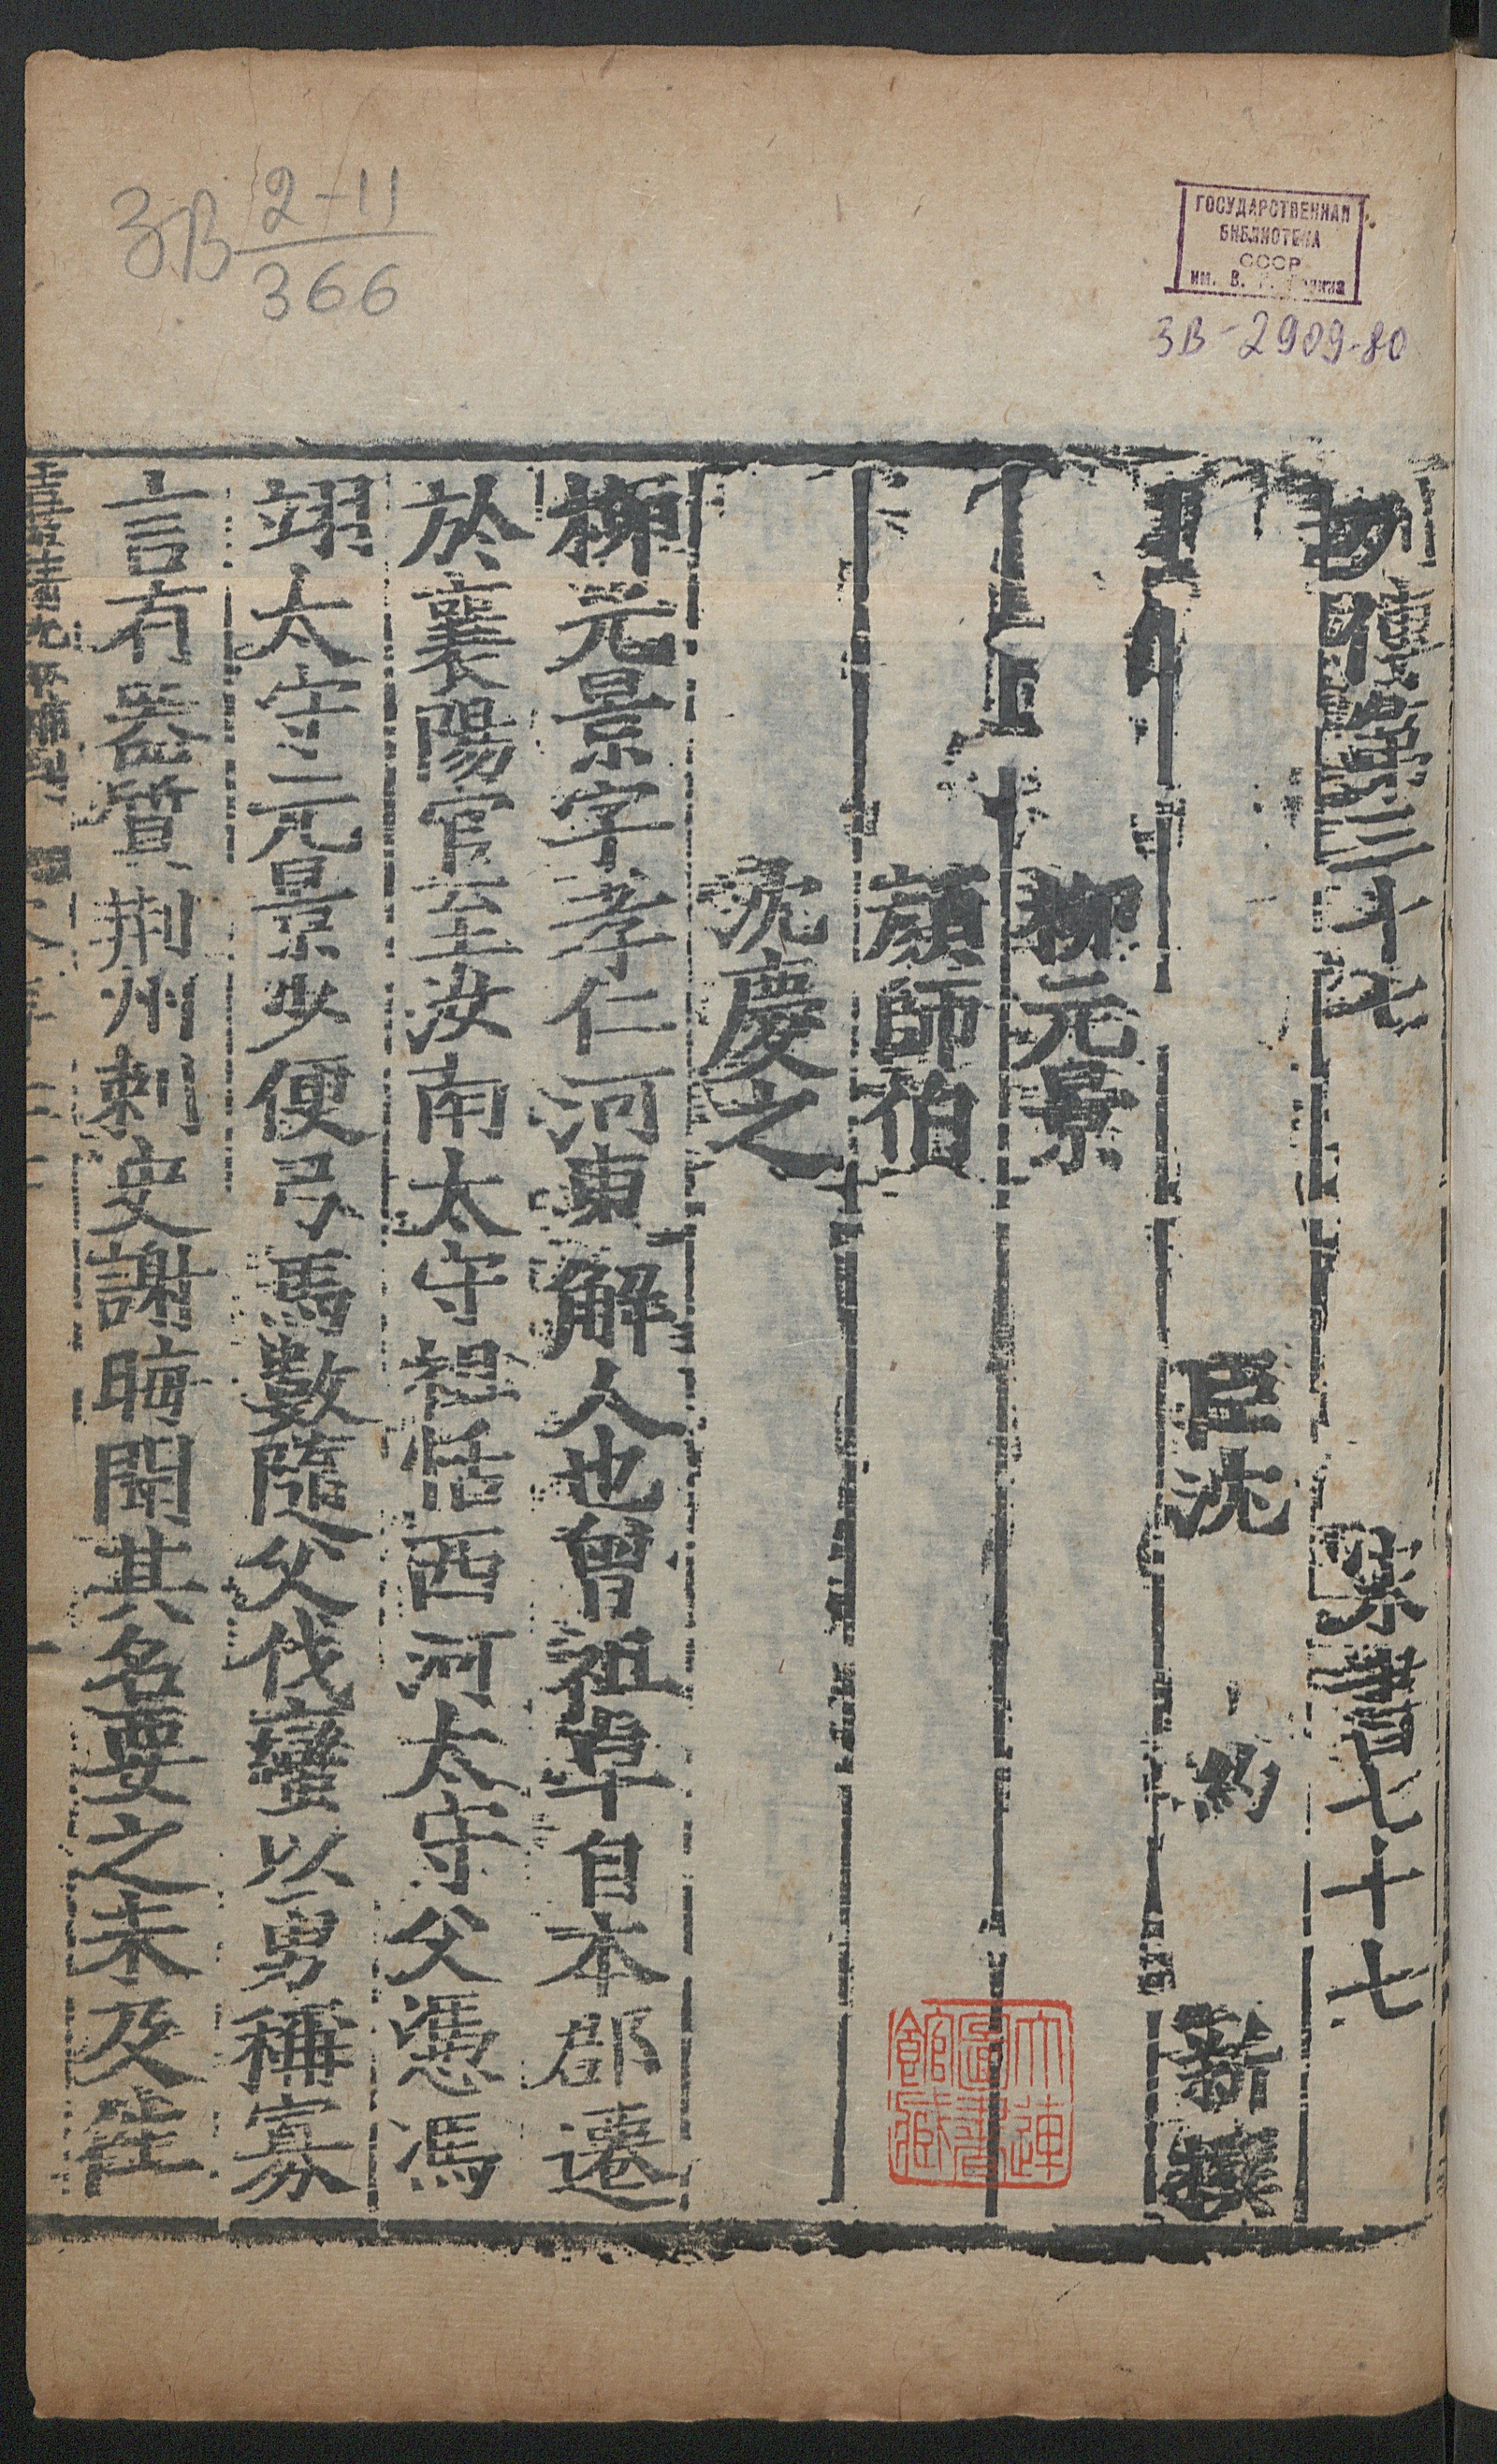 ЗВ 2-11
366
ГОСУДАРСТВЕННАЯ
БИБЛИОТЕКА
СССР
им. В. И. Ленина
ЗВ-2909-80
列傳第三十七 宋書七十七
臣沈 約 新撰
柳元景
顔師伯
沈慶之
柳元景字孝仁河東解人也曾祖卓自本郡遷
於襄陽官至汝南太守祖恬西河太守父憑馮
翊太守元景少便弓馬數隨父伐蠻以勇稱寡
言有器質荆州刺史謝晦聞其名要之未及往
一
大連
圖書
館藏